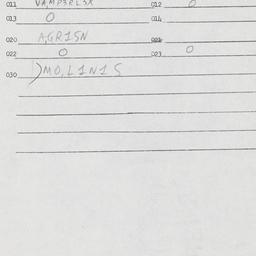 011 VAMP3RL3X 012 O
013 O 014
020 A,GR1SN 021
022 O 023 O
030 )MO,L1N1S